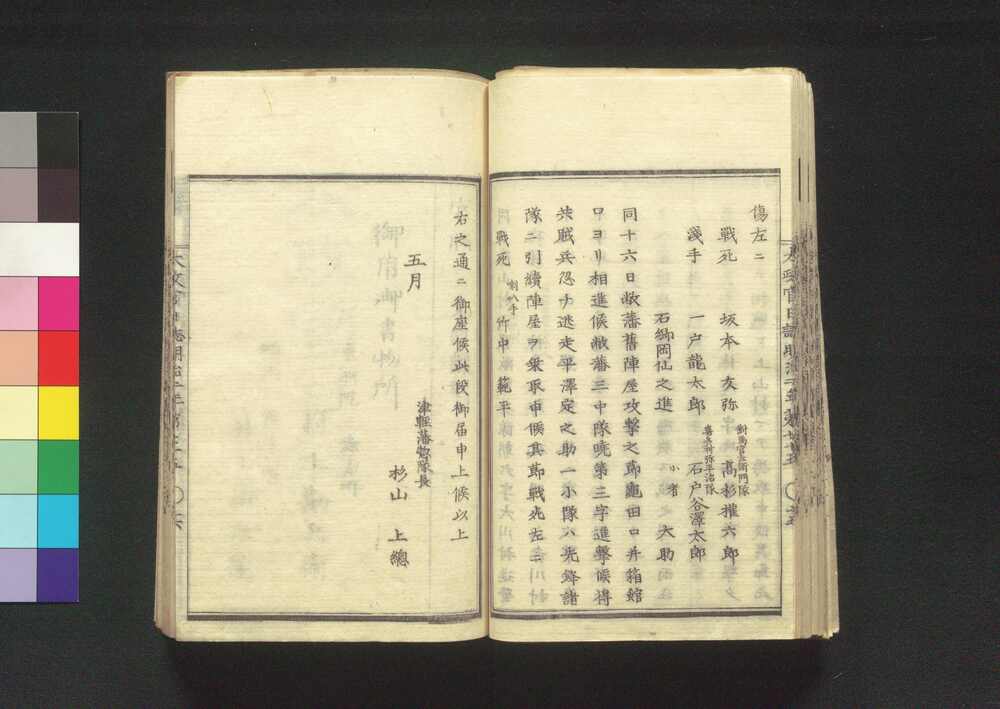 傷左ニ
戦死 坂本友弥 對馬官左衛門隊 高杉權六郎
淺手 一戸龍太郎 喜多村弥平治隊 石戸谷澤太郎
石郷岡仙之進 小者 大助
同十六日敝藩舊陣屋攻撃之節龜田口并箱館
口ヨリ相進候敝藩三中隊暁第三字進撃候得
共賊兵忍ナ逃走平澤定之助一小隊六光鋒諸
隊ニ引續陣屋ヲ乗取申候其節戦死左ニ
戦死 喇叭手 竹中範平
右之通ニ御座候此段御届申上候以上
五月
津軽藩惣隊長
杉山上總